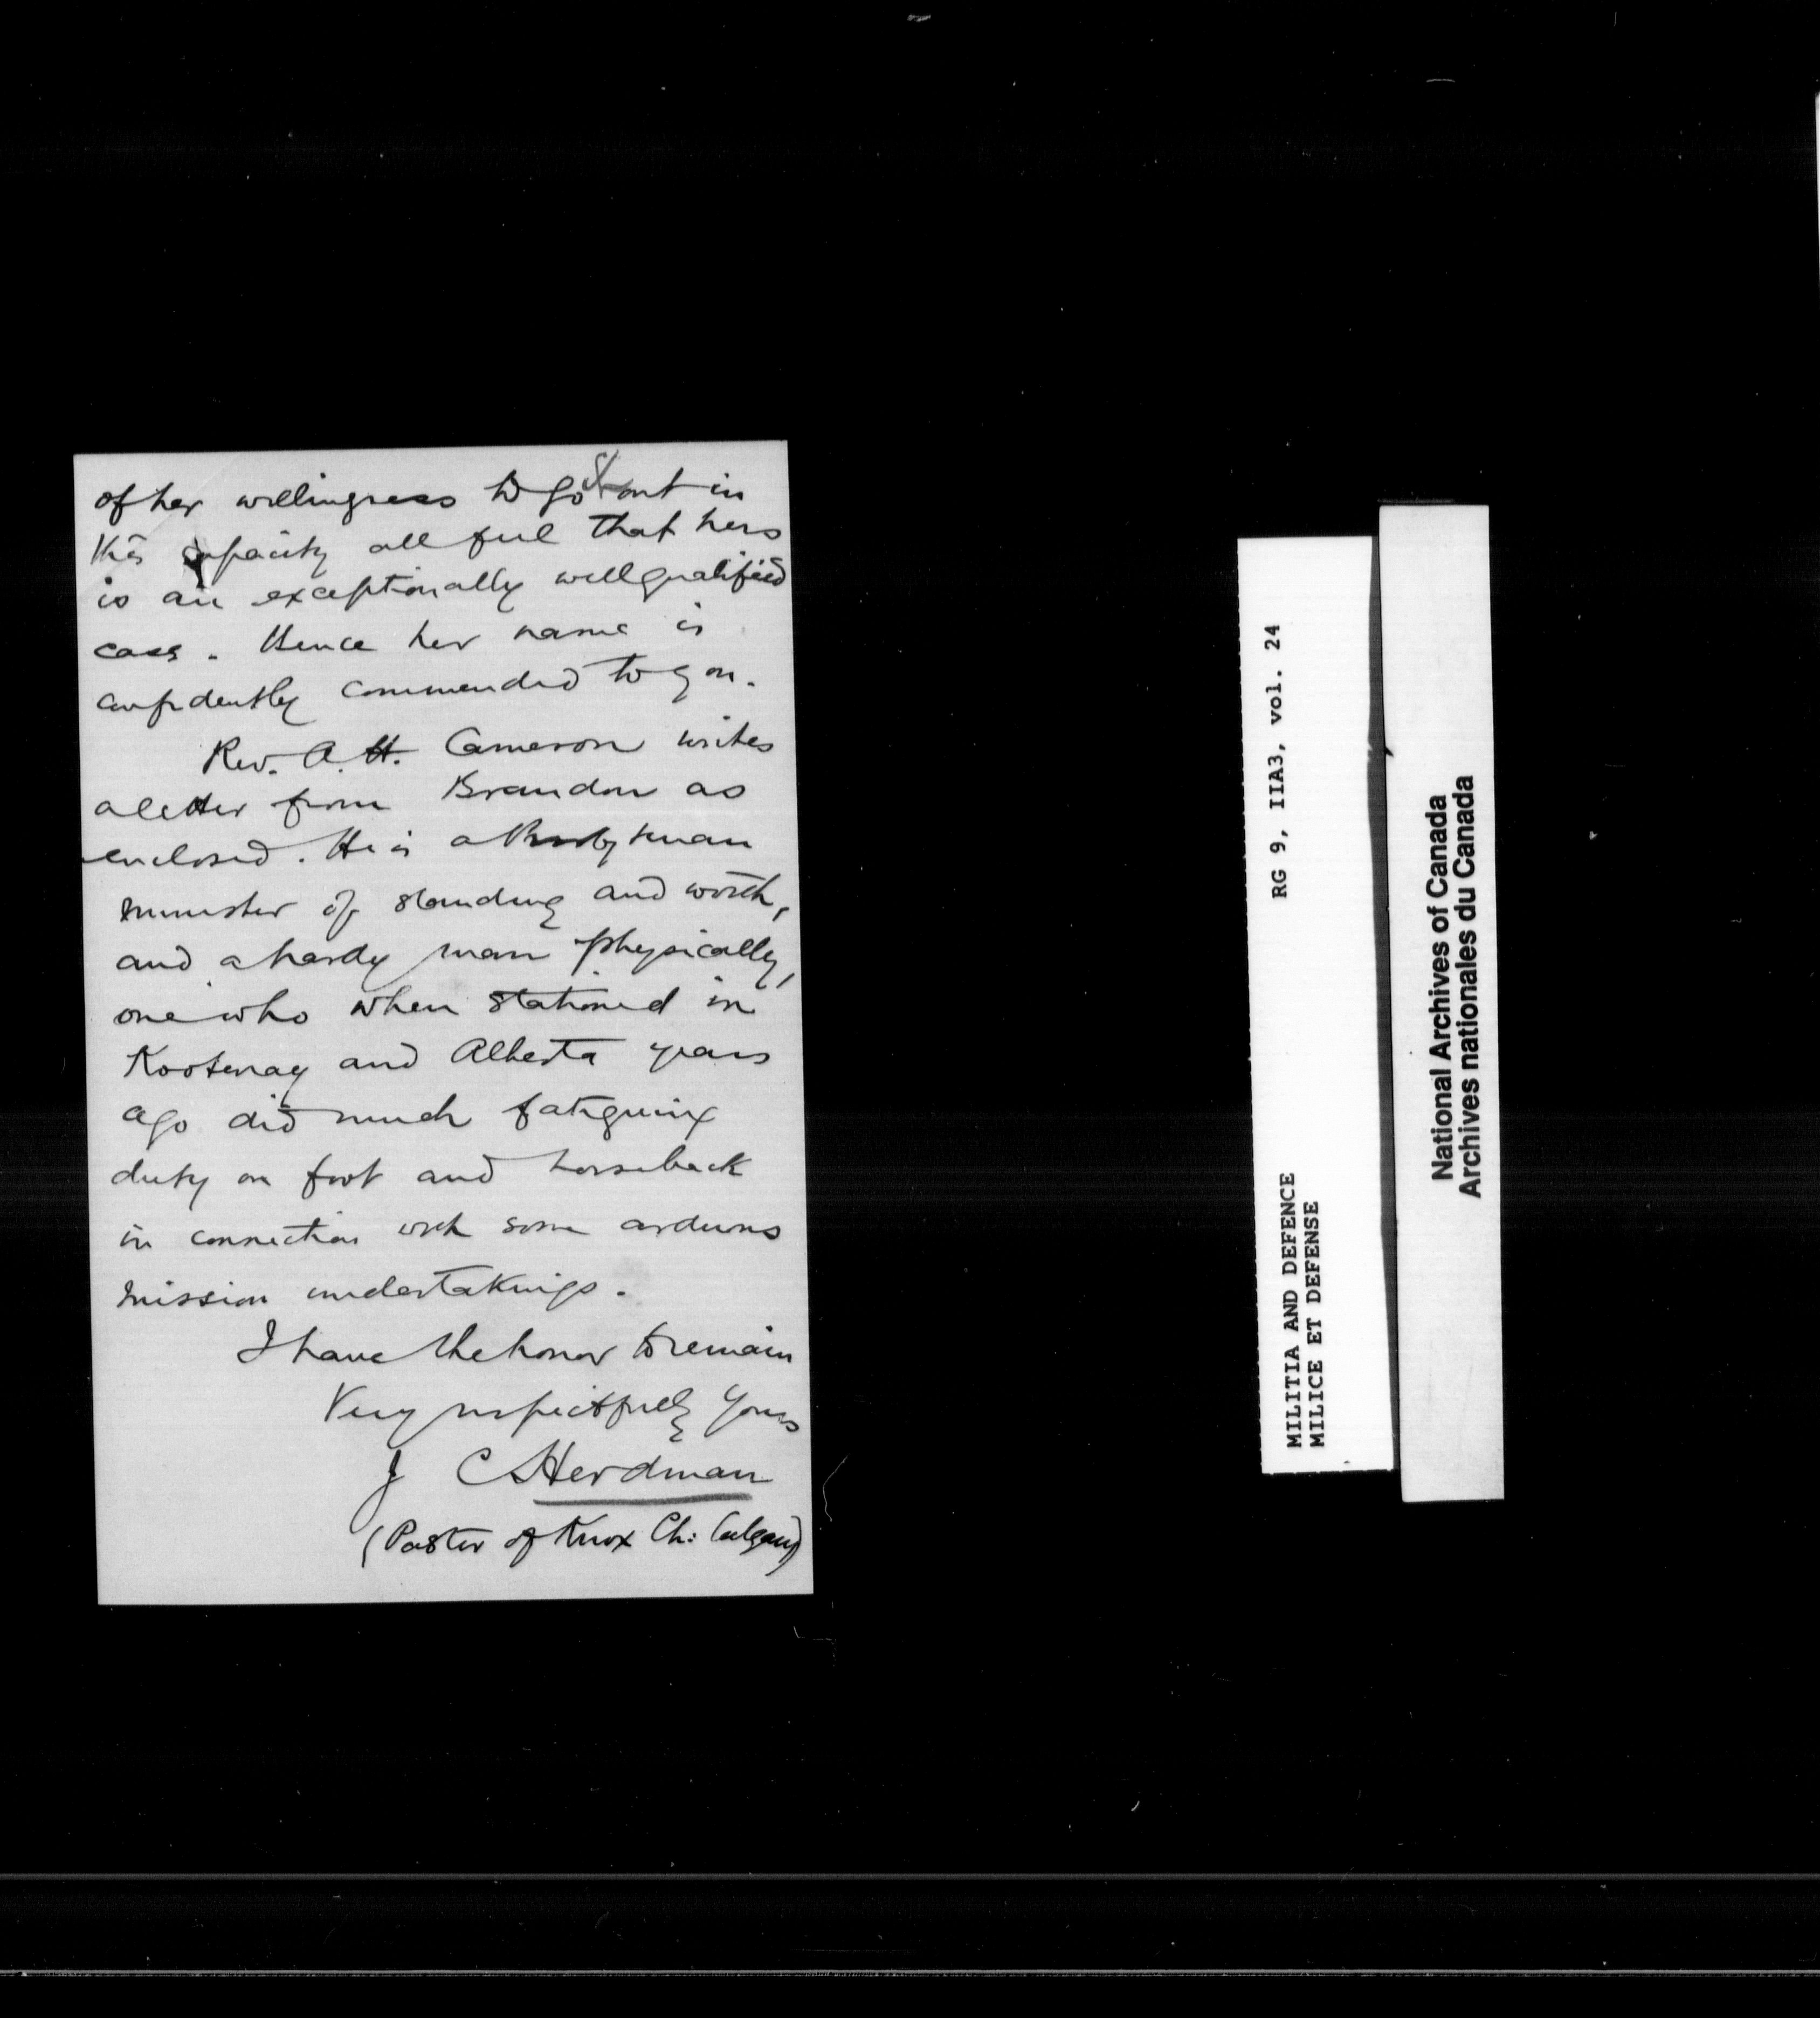 of her willingness to go out in
this capacity all feel that hers
is an exceptionally well qualified
case. Hence her name is
confidently commended to you.
Rev. A. H. Cameron writes
a letter from Brandon as
enclosed. He is a Presbyterian
minister of standing and worth,
and a hardy man physically,
one who when stationed in
Kootenay and Alberta years
ago did much fatiguing
duty on foot and horseback
in connection with some arduous
mission undertakings.
I have the honor to remain
Very respectfully yours
J C Herdman
(Pastor of Knox Ch: Calgary)
MILITIA AND DEFENCE RG 9, IIA3, vol. 24
MILICE ET DEFENSE
National Archives of Canada
Archives nationales du Canada